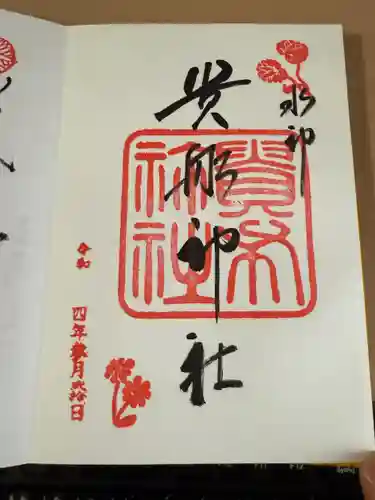 水神
貴船神社
貴布
祢社
令和
四年 月弐拾日